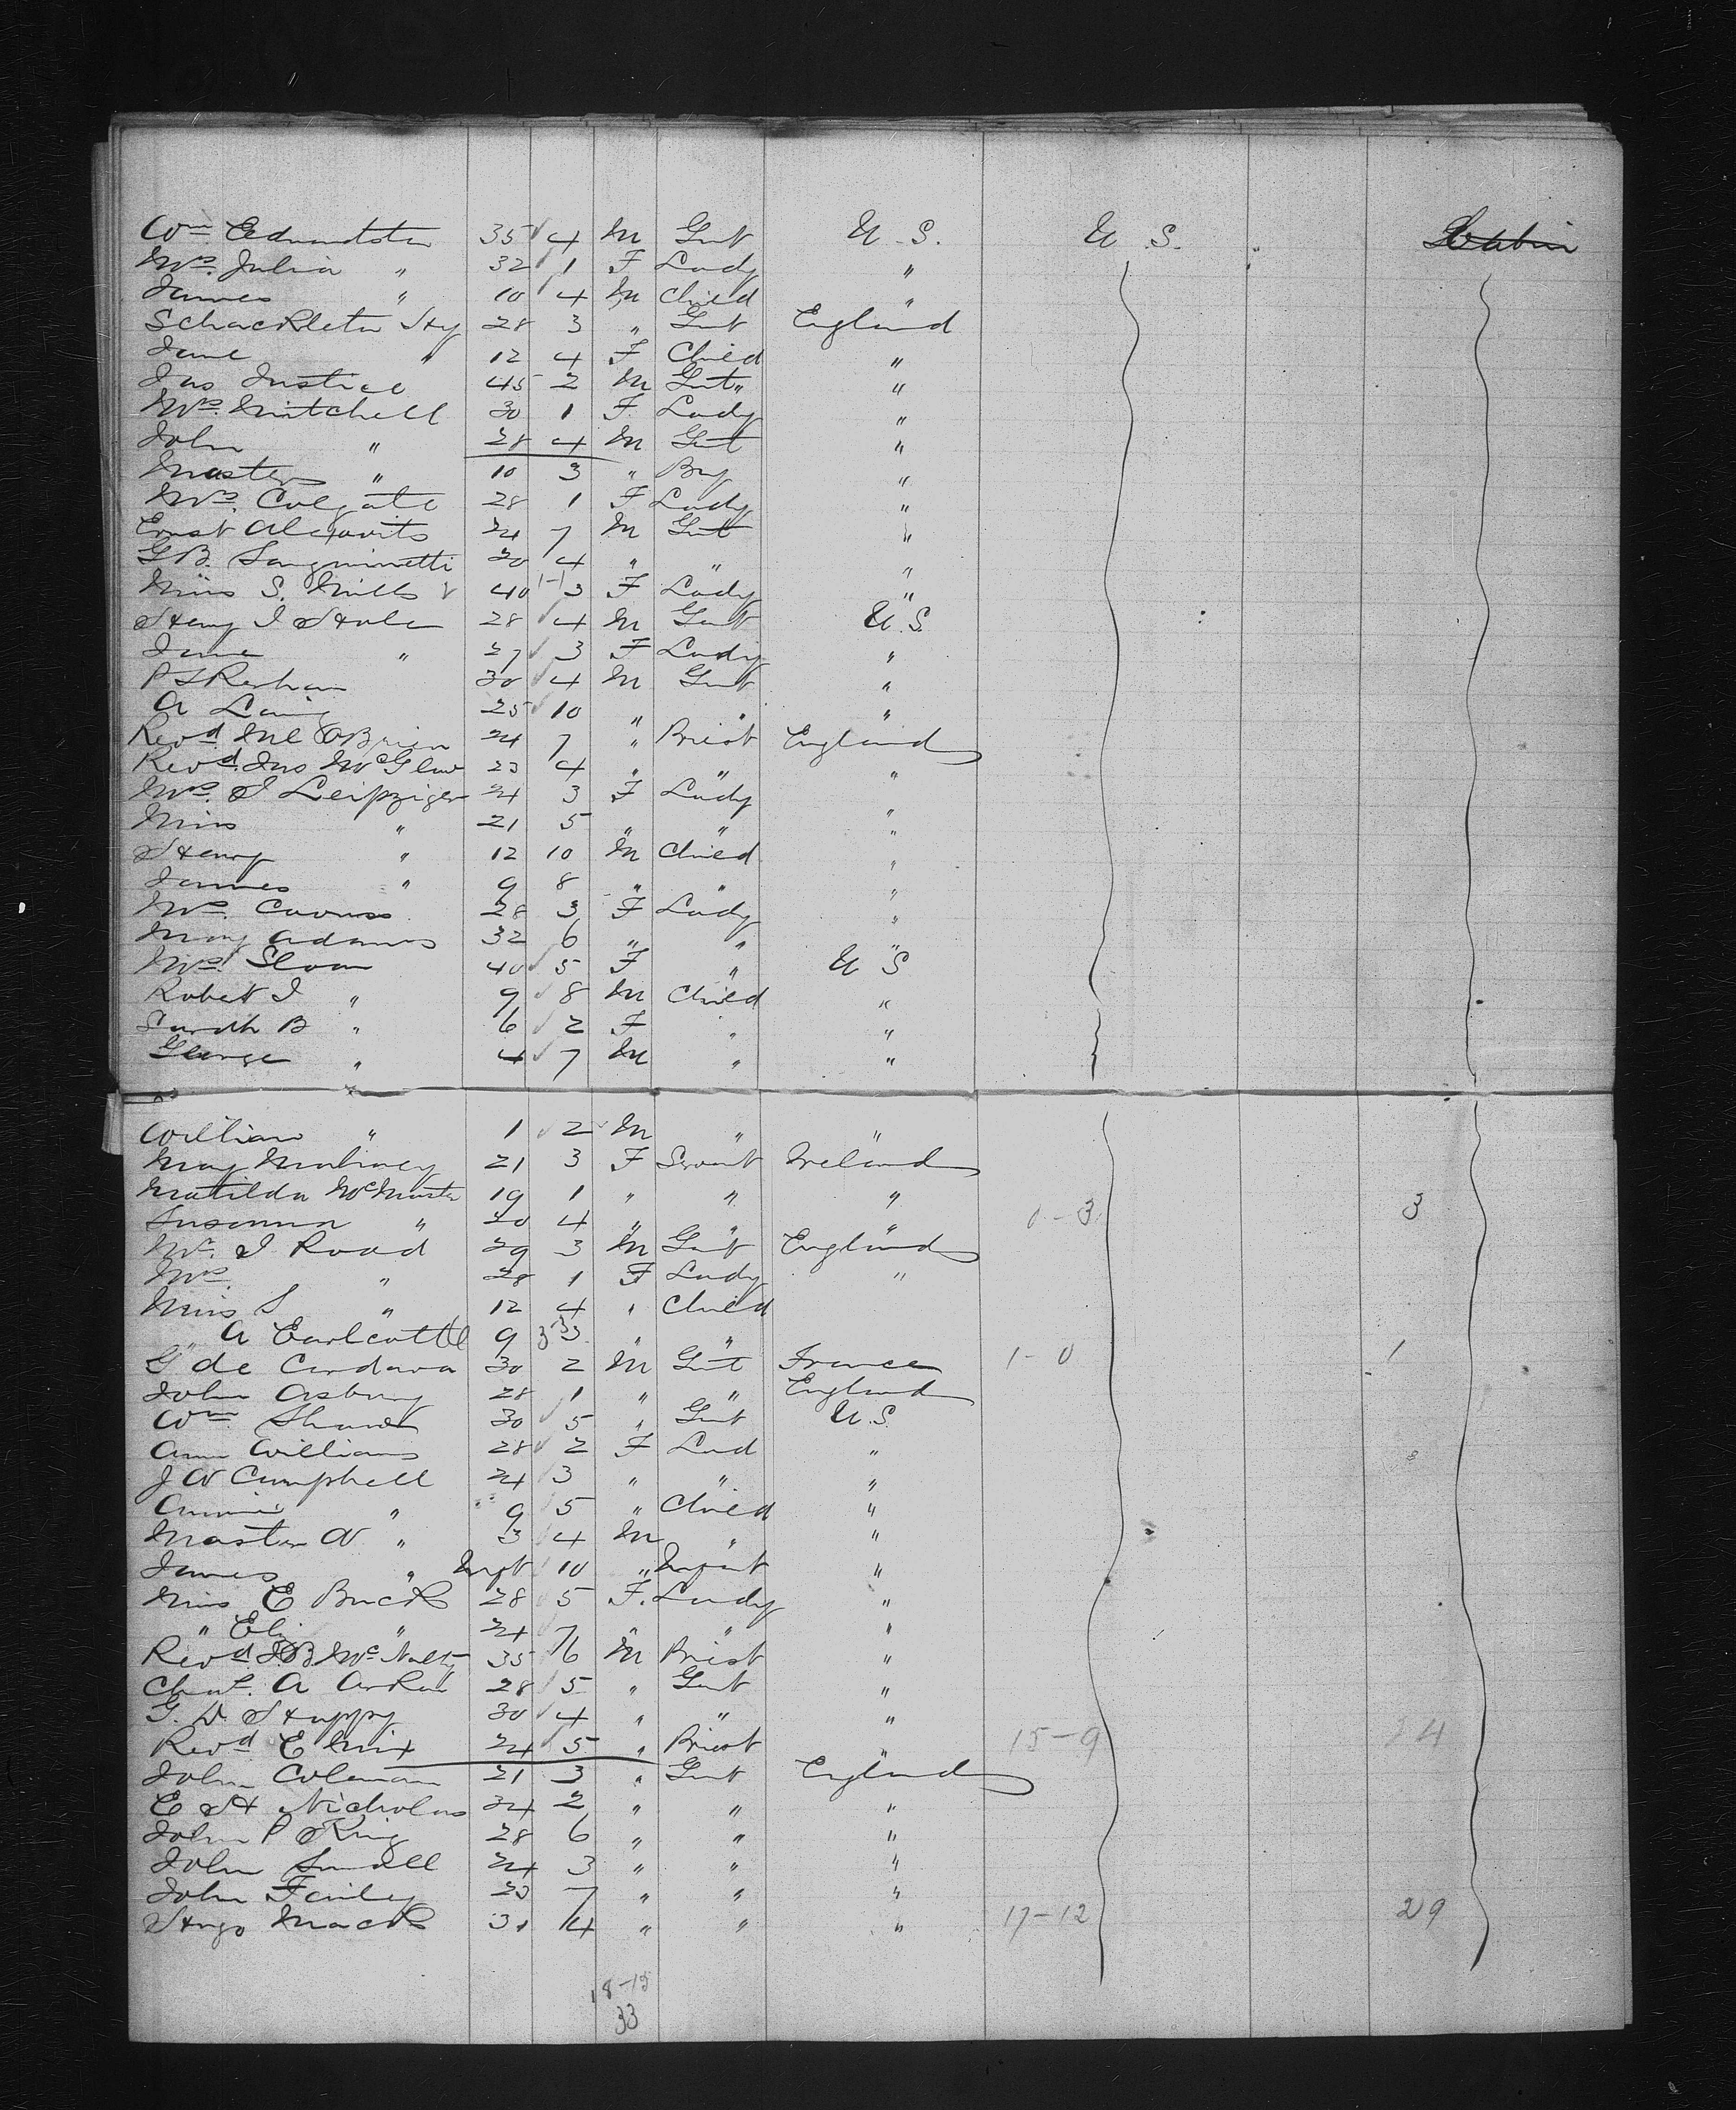 Wm Edmundston 35 4 M Gent U.S. U.S. Cabin
Mrs. Julia " 32 1 F Lady "
James " 10 4 M Child "
Schackleton Hy 28 3 " Gent England
Jane " 12 4 F Child "
Jas Justice 45 2 M Gent "
Mrs. Mitchell 30 1 F Lady "
John " 28 4 M Gent "
Master " 10 3 " Boy "
Mrs. Colgate 28 1 F Lady "
Ernst 24 7 M Gent "
G B. Sanguinetti 20 4 " " "
Miss S. Mills 40 3 F Lady "
Henry J 28 4 M Gent U.S.
Jane " 27 3 F Lady "
P 30 4 M Gent "
A Laing 25 10 " " "
Revd. Ml O'Brien 24 7 " Priest England
Revd. Jno 23 4 " " "
Mrs. J Leipziger 24 3 F Lady "
Miss " 21 5 " " "
Henry " 12 10 M Child "
James " 9 8 " " "
Mrs. 28 3 F Lady "
Mary Adams 32 6 " " "
Mrs. Sloan 40 5 F " U S
Robert J " 9 8 M Child "
Sarah B " 6 2 F " "
George " 4 7 M " "
William " 1 2 M " "
Mary Mulraey 21 3 F Servant Ireland
Matilda McMaster 19 1 " " "
Susanna " 20 4 " " " 0-3 3
Mr. J Road 29 3 M Gent England
Mrs. " 28 1 F Lady "
Miss S " 12 4 " Child
" A 9 3 " "
G de Cardova 30 2 M Gent France 1-0 1
John Asbury 28 1 " " England
Wm. 30 5 " Gent U.S.
Ann Williams 28 2 F Lad "
J W Campbell 24 3 " " "
Annie " 9 5 " Child "
Master W " 3 4 M " "
James " Inft 10 " Infant "
Miss E Buck 28 5 F. Lady "
" Eliz " 24 7 " " "
Revd. J B McNulty 35 6 M Priest "
Chas. A 28 5 " Gent "
G. D. Happy 30 4 " " "
Revd E Mix 24 5 " Priest " 15-9 24
John Coleman 21 3 " Gent England
E H Nicholas 34 2 " " "
John P King 28 6 " " "
John Small 24 3 " " "
John Finley 23 7 " " "
Hugo Mack 31 4 " " " 17-12 29
18-15
33